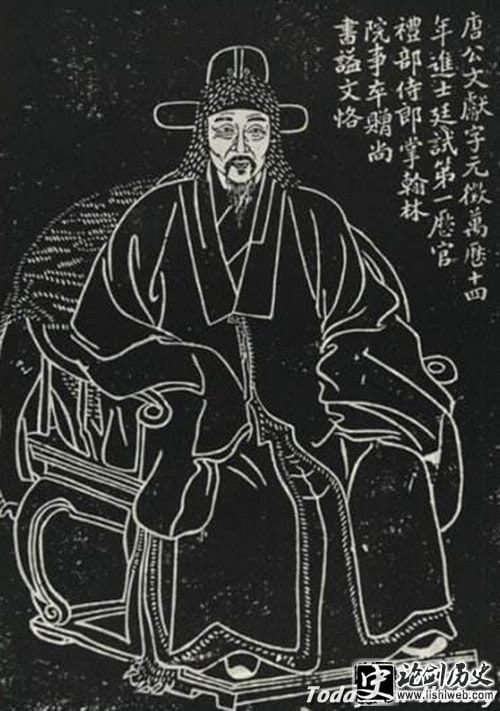 唐公文獻字元徵萬歷十四
年進士廷試第一歷官
禮部侍郎掌翰林
院事卒贈尚
書謚文恪
史 论剑历史
www.lishiweb.com